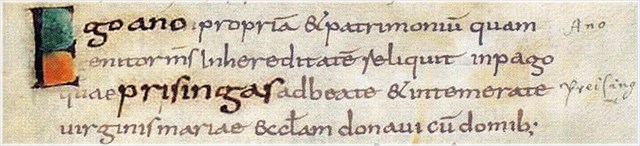 Ego ano propriā & patrimoniū quam Ano
genitor m̄s In hereditatē reliquit in pago
quae prisingas ad beate & intemerate Preising
uirginis mariae & ecl̄am donaui cū domib;